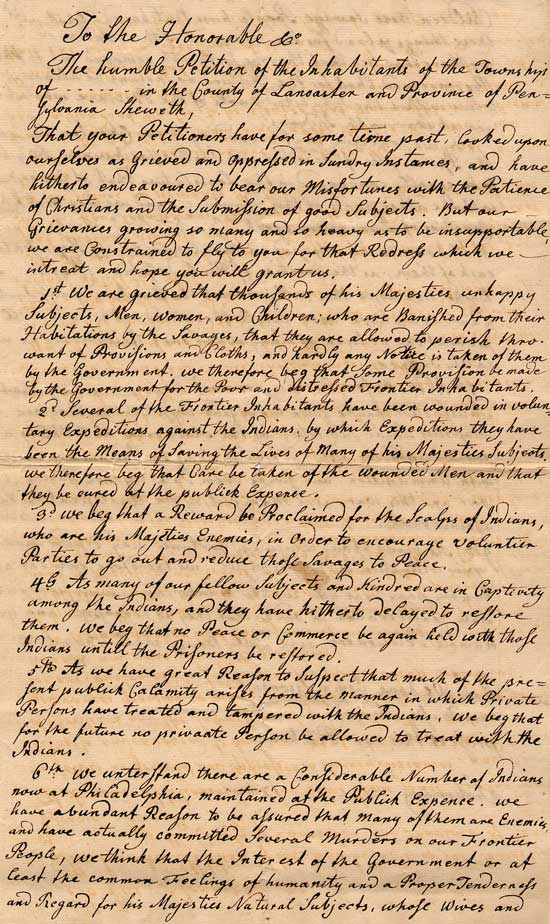 To the Honorable &c.
The humble Petition of the Inhabitants of the Township
of - - - - - - - in the County of Lancaster and Province of Pen=
sylvania Sheweth,
That your Petitioners have for some time past, looked upon
ourselves as Grieved and oppressed in Sundry Instances, and have
hitherto endeavoured to bear our Misfortunes with the Patience
of Christians and the Submission of good Subjects. But our
Grievances growing so many and so heavy as to be insupportable
we are Constrained to fly to you for that Redress which we
intreat and hope you will grant us.
1st We are grieved that thousands of his Majesties unhappy
Subjects, Men, Women, and Children; who are Banished from their
Habitations by the Savages, that they are allowed to perish thro'
want of Provisions and Cloths, and hardly any Notice is taken of them
by the Government. we therefore beg that Some Provision be made
by the Government for the Poor and distressed Frontier Inhabitants.
2d Several of the Frontier Inhabitants have been wounded in volun=
tary Expeditions against the Indians. by which Expeditions they have
been the Means of Saving the Lives of Many of his Majesties Subjects,
we therefore beg that Care be taken of the wounded Men and that
they be cured at the publick Expence.
3d we beg that a Reward be Proclaimed for the Scalps of Indians,
who are his Majeties Enemies, in Order to encourage voluntier
Parties to go out and reduce those Savages to Peace.
4th As many of our fellow Subjects and Kindred are in Captivity
among the Indians, and they have hitherto delayed to restore
them. we beg that no Peace or Commerce be again held with those
Indians until the Prisoners be restored.
5th As we have great Reason to Suspect that much of the pre=
sent publick Calamity arises from the manner in which Private
Persons have treated and tampered with the Indians. we beg that
for the future no privaate Person be allowed to treat with the
Indians.
6th we unterstand there are a Considerable Number of Indians
now at Philadelphia, maintained at the Publick Expence. we
have abundant Reason to be assured that many of them are Enemies
and have actually committed Several Murders on our Frontier
People, we think that the Interest of the Government or at
least the common Feelings of humanity and a Proper Tenderness
and Regard for his Majesties Natural Subjects, whose Wives and